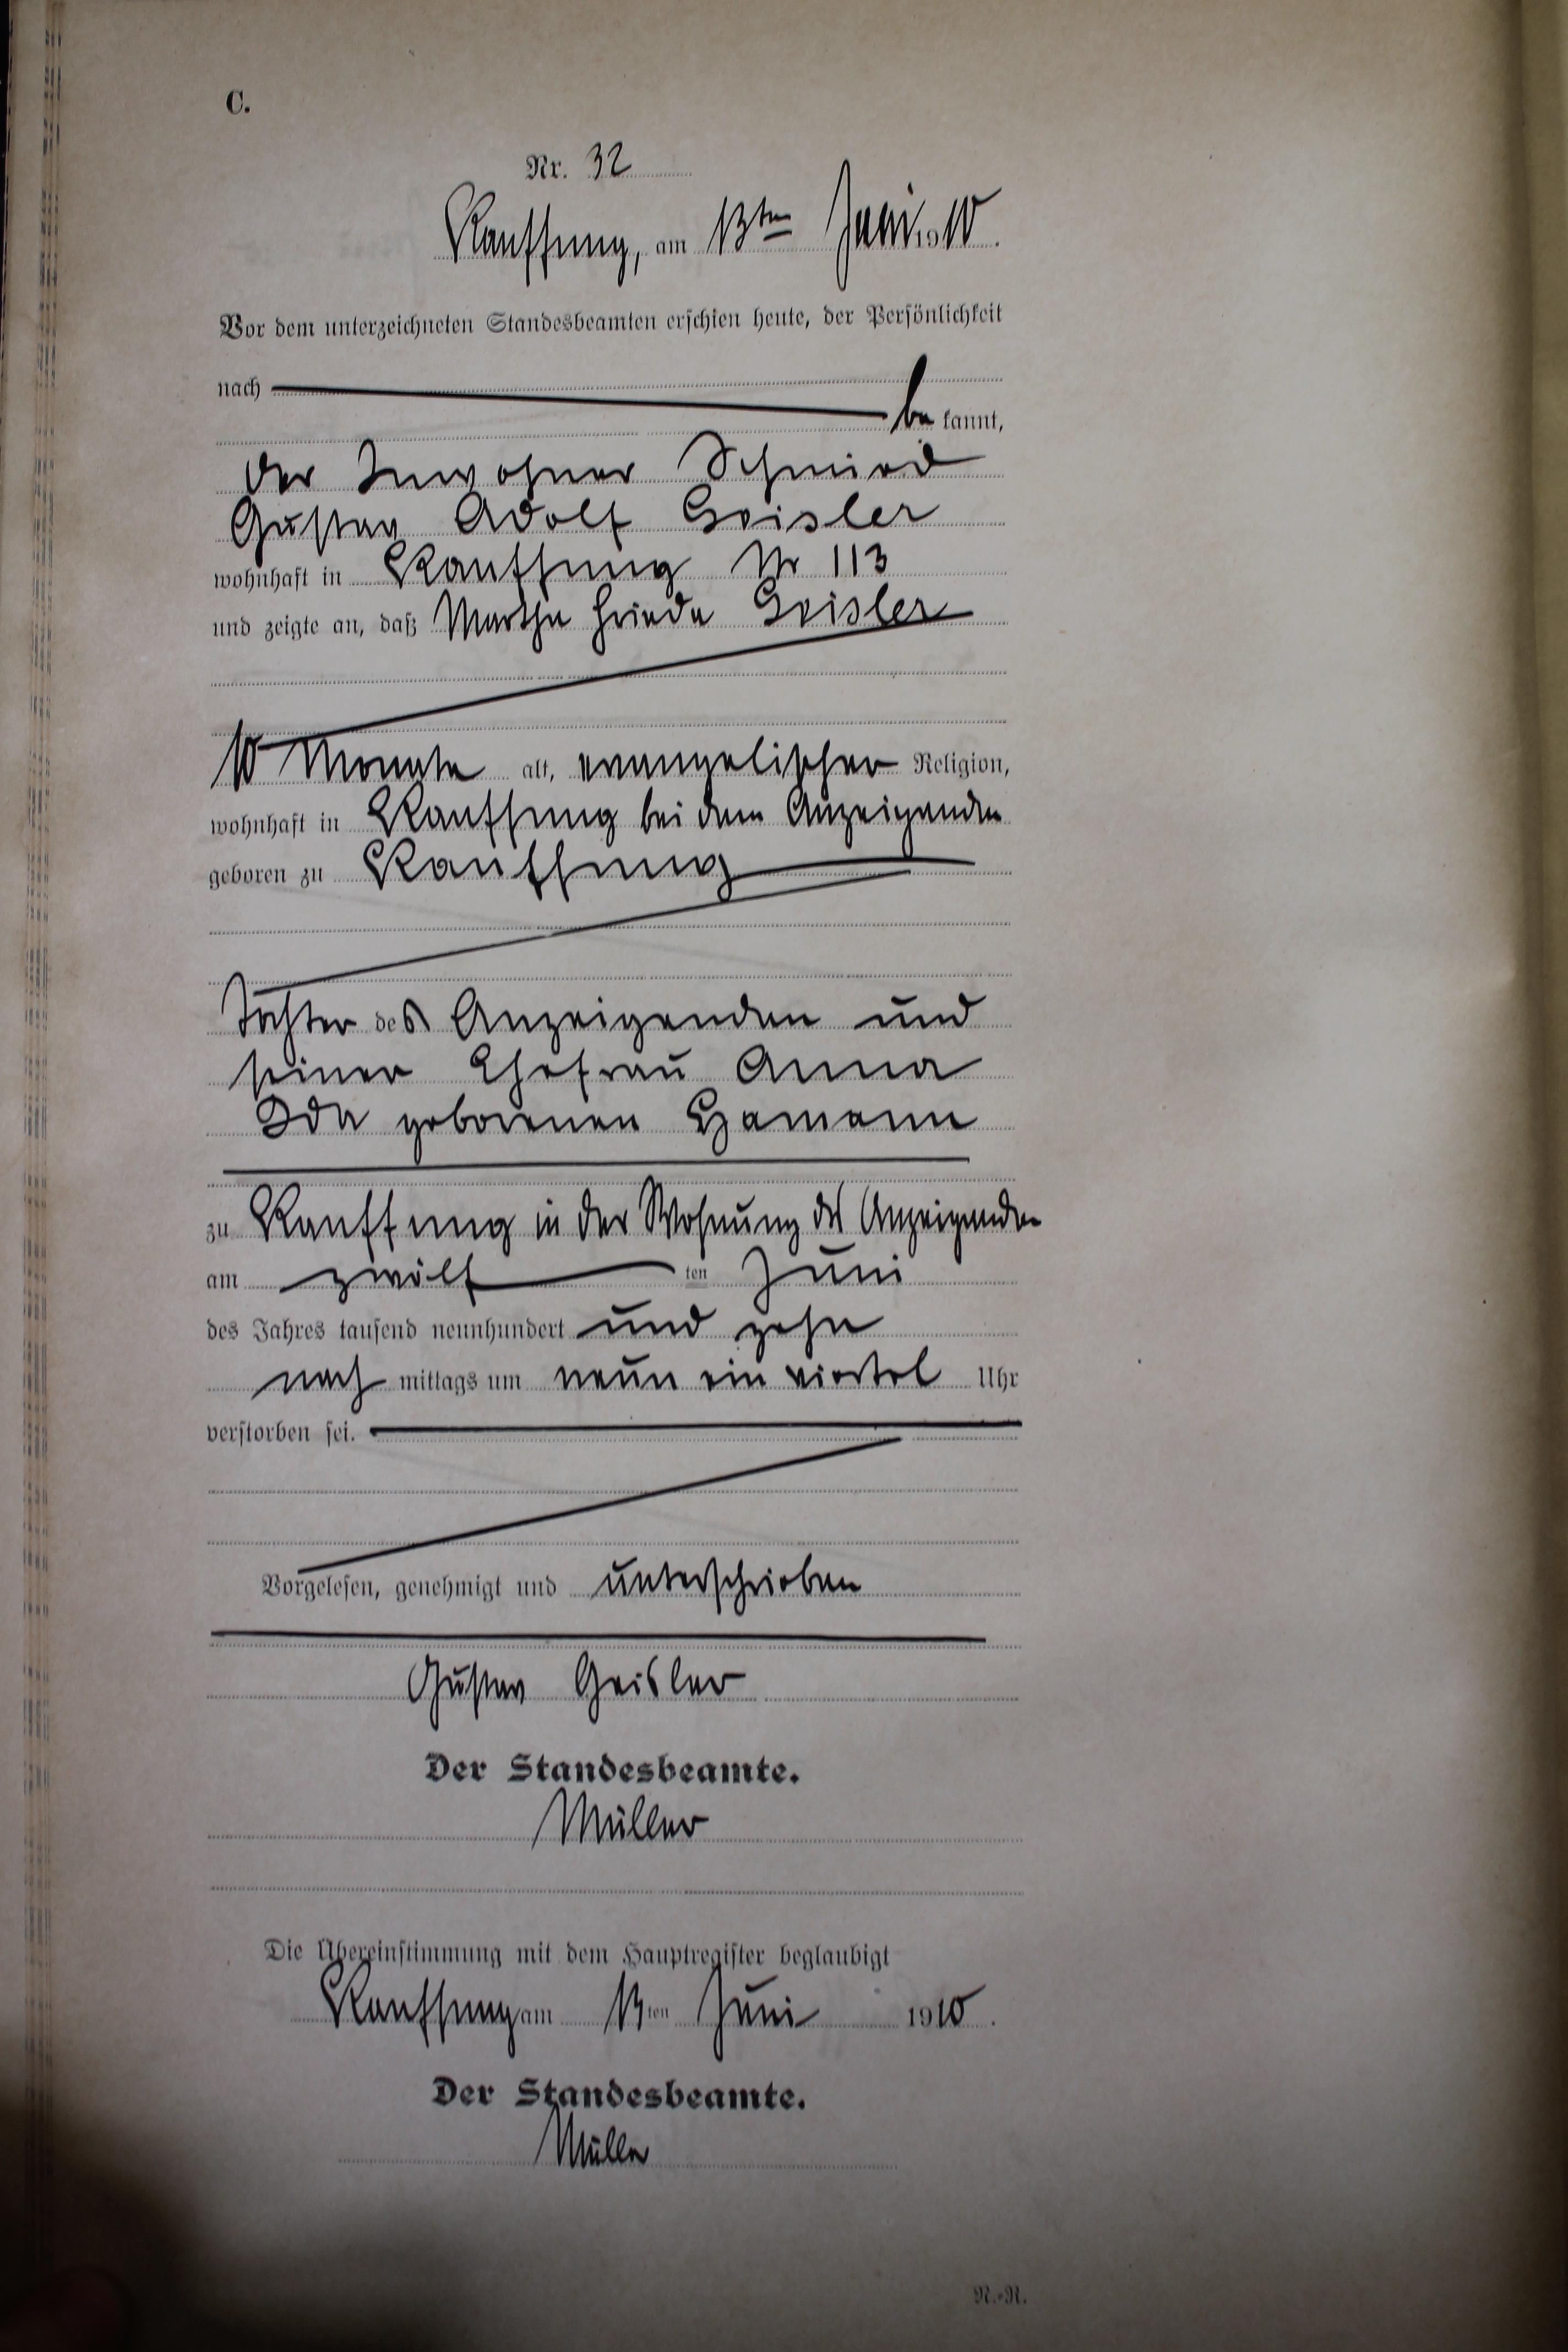 C.
Nr. 32
Kauffung, am 13ten Juni 1910.
Vor dem unterzeichneten Standesbeamten erschien heute, der Persönlichkeit
nach
be kannt,
der Inwohner Schmied
Gustav Adolf Geisler
wohnhaft in Kauffung Nr 113
und zeigte an, daß Martha Frieda Geisler
10 Monate alt, evangelischer Religion,
wohnhaft in Kauffung bei dem Anzeigenden
geboren zu Kauffung
Tochter des Anzeigenden und
seiner Ehefrau Anna
Ida geborenen Hamann
zu Kauffung in der Wohnung des Anzeigenden
am zwölf ten Juni
des Jahres tausend neunhundert und zehn
nach mittags um neun ein viertel Uhr
verstorben sei.
Vorgelesen, genehmigt und unterschrieben
Gustav Geisler
Der Standesbeamte.
Müller
Die Übereinstimmung mit dem Hauptregister beglaubigt
Kauffung am 13ten Juni 1910.
Der Standesbeamte.
Müller
N.-N.